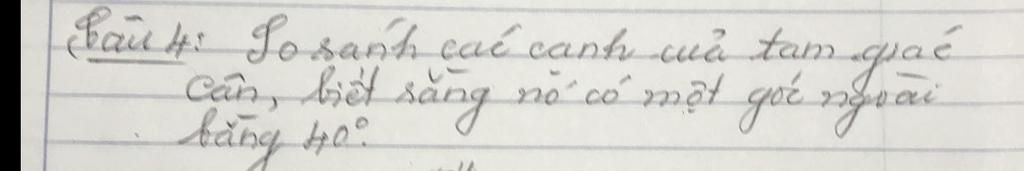 Câu 4: So sánh các cạnh của tam giác
cân, biết rằng nó có một góc ngoài
bằng 40°.